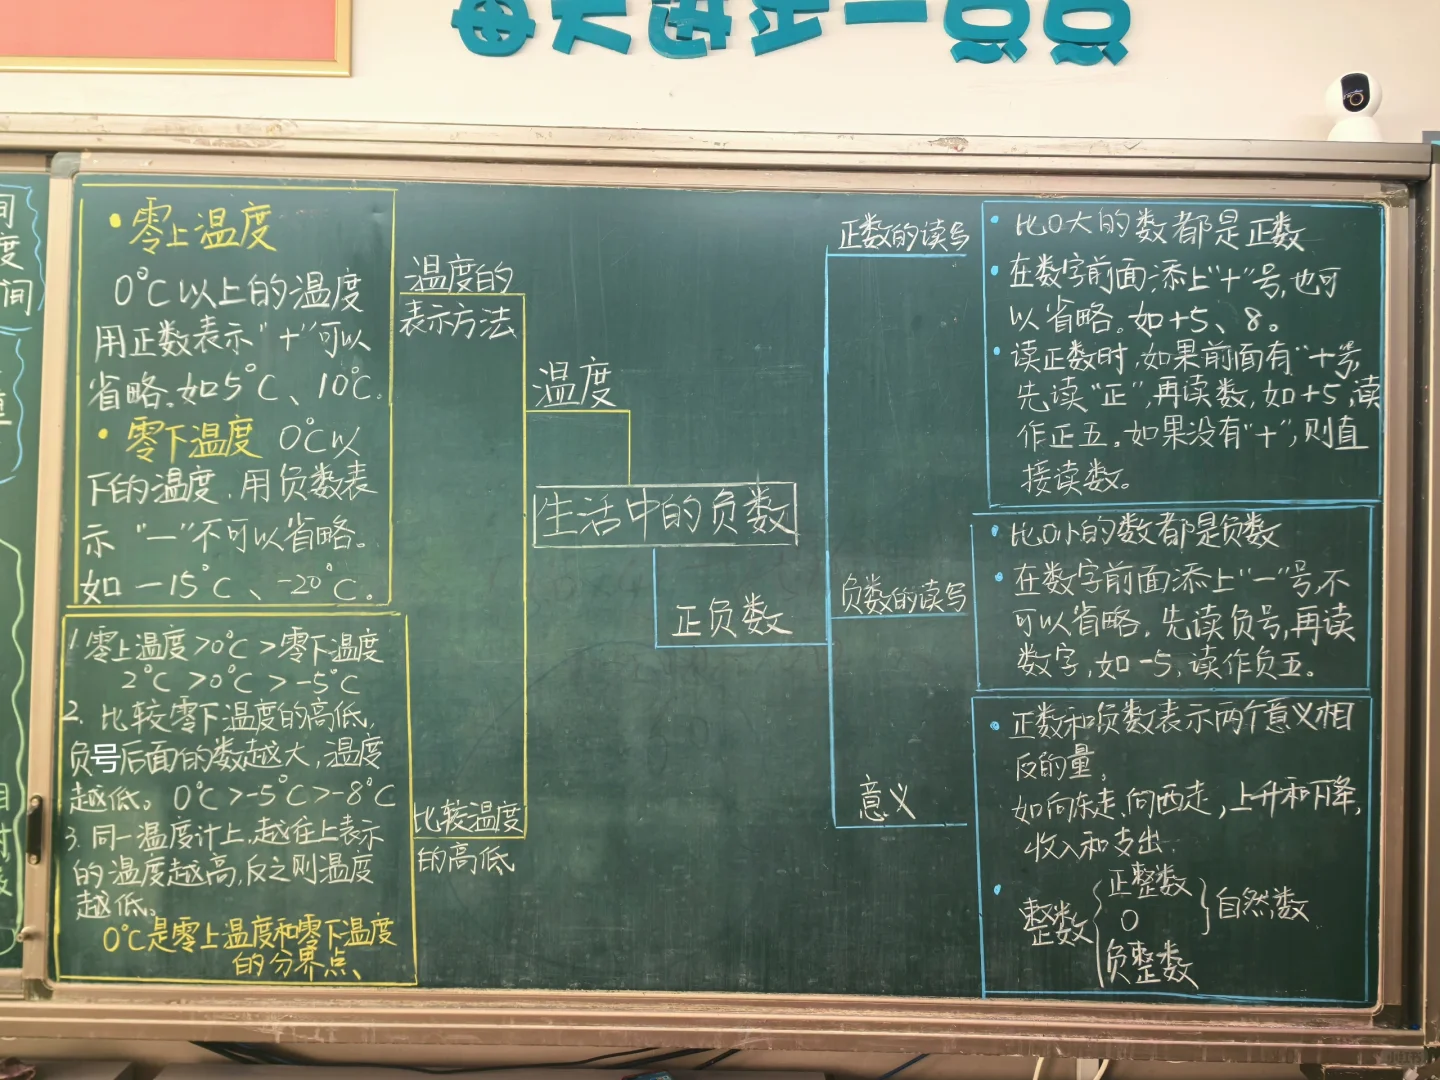 每天进步一点点
间
度
间
•零上温度
0°C以上的温度
用正数表示“+”可以
省略。如5°C、10°C。
•零下温度 0°C以
下的温度,用负数表
示“一”不可以省略。
如 -15°C、-20°C。
1.零上温度>0°C>零下温度
2°C>0°C>-5°C
2. 比较零下温度的高低,
负号后面的数越大,温度
越低。0°C>-5°C>-8°C
3.同一温度计上,越往上表示
的温度越高,反之则温度
越低。
0°C是零上温度和零下温度
的分界点
温度的
表示方法
温度
比较温度
的高低
生活中的负数
正负数
正数的读写
负数的读写
意义
•比0大的数都是正数
•在数字前面添上“+”号,也可
以省略。如+5、8。
•读正数时,如果前面有“+”号,
先读“正”,再读数,如+5,读
作正五。如果没有“+”,则直
接读数。
•比0小的数都是负数
•在数字前面添上“一”号,不
可以省略,先读负号,再读
数字,如-5,读作负五。
•正数和负数表示两个意义相
反的量。
如向东走、向西走,上升和下降,
收入和支出.
•整数{正整数
0 }自然数
负整数
小红书